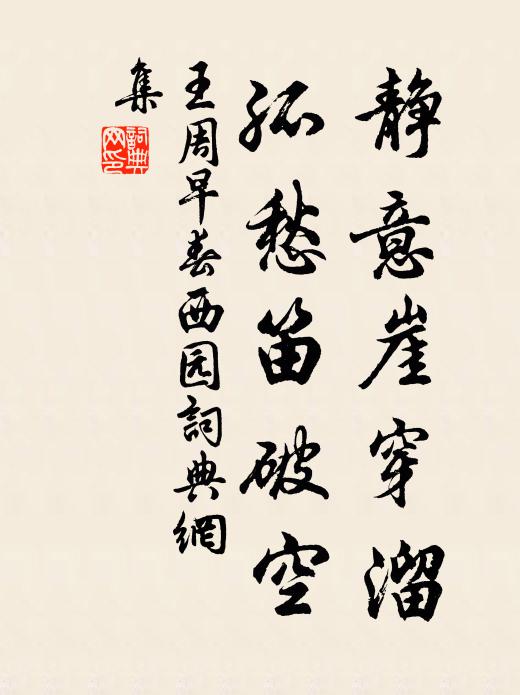 静意崖穿溜
孤愁笛破空
王周早春西园詞典網
集
詞典
网印